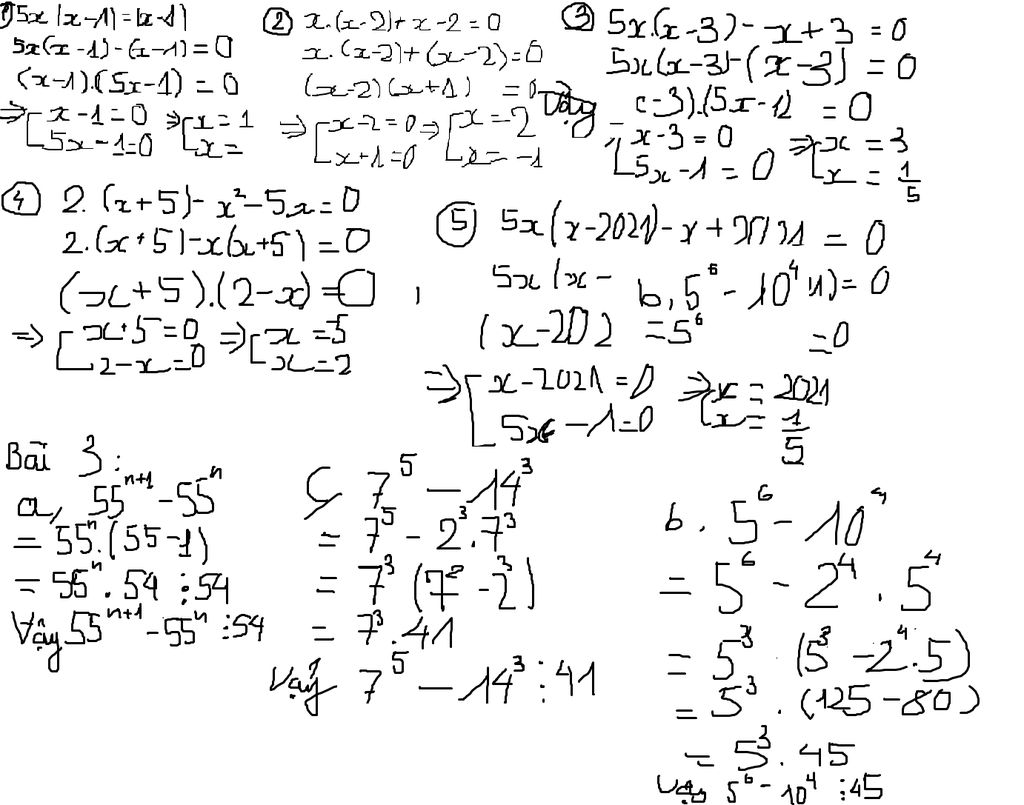 1) 5x(x-1)=(x-1)
5x(x-1)-(x-1)=0
(x-1).(5x-1)=0
=> [x-1=0 => [x=1
5x-1=0 x=
② x.(x-2)+x-2=0
x.(x-2)+(x-2)=0
(x-2)(x+1)=0
=> [x-2=0 => [x=2
x+1=0 x=-1
③ 5x.(x-3)-x+3=0
5x(x-3)-(x-3)=0
-3).(5x-1)=0
[x-3=0 => [x=3
5x-1=0 x=1/5
④ 2.(x+5)-x²-5x=0
2.(x+5)-x(x+5)=0
(x+5).(2-x)=0
=> [x+5=0 => [x=5
2-x=0 x=2
⑤ 5x(x-2021)-x+ = 0
5x(x- b, 5⁶-10⁴ 1)=0
(x-20 =5⁶ =0
=> [x-2021=0 => [x=2021
5x-1=0 x=1/5
Bài 3:
a, 55ⁿ⁺¹-55ⁿ
=55ⁿ.(55-1)
=55ⁿ.54 ⋮54
Vậy 55ⁿ⁺¹-55ⁿ ⋮54
c, 7⁵-14³
=7⁵-2³.7³
=7³(7²-2³)
=7³.41
Vậy 7⁵-14³⋮41
b. 5⁶-10⁴
=5⁶-2⁴.5⁴
=5³.(5³-2⁴.5)
=5³.(125-80)
=5³.45
Vậy 5⁶-10⁴⋮45